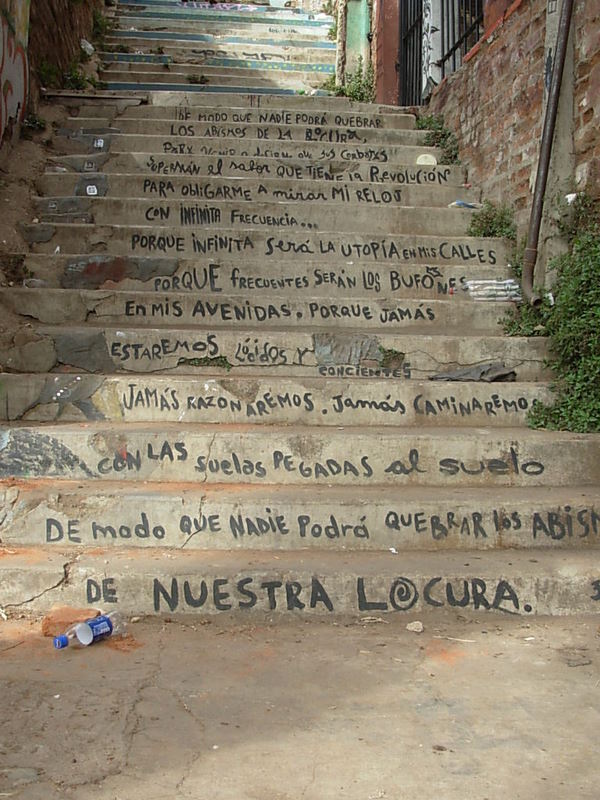 DE MODO QUE NADIE PODRÁ QUEBRAR
LOS ABISMOS DE LA
sus Cordones
Superarán el sabor QUE TIENE la REVOLUCIÓN
PARA OblIGARME A mirar MI RELOJ
CON INFINITA FRECUENCIA...
PORQUE INFINITA Será LA UTOPÍA EN MIS CALLES
PORQUE frecuentes SERÁN LOS BUFONES
En MIS AVENIDAS. PORQUE JAMÁS
ESTAREMOS LÚCIDOS Y
CONCIENTES
JAMÁS RAZONAREMOS. Jamás CAMINAREMOS
CON LAS suelas PEGADAS al suelo
DE modo QUE NADIE Podrá QUEBRAR los ABISM
DE NUESTRA LOCURA.